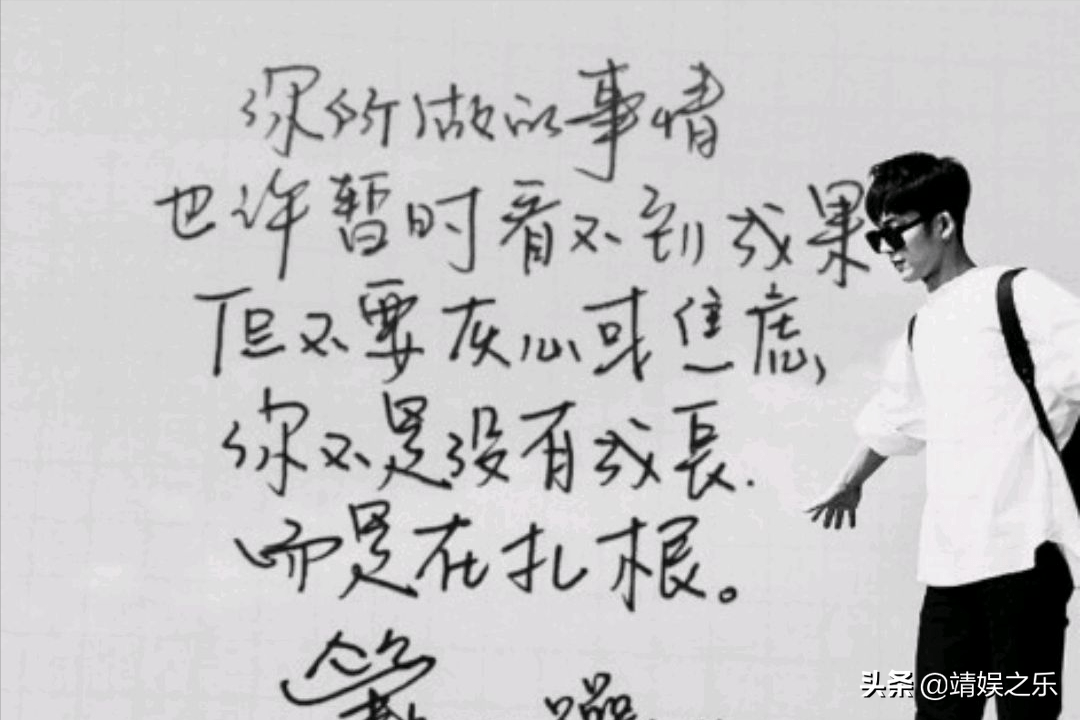 你所做的事情
也许暂时看不到成果
但不要灰心或焦虑,
你不是没有成長.
而是在扎根。
头条 @靖娱之乐